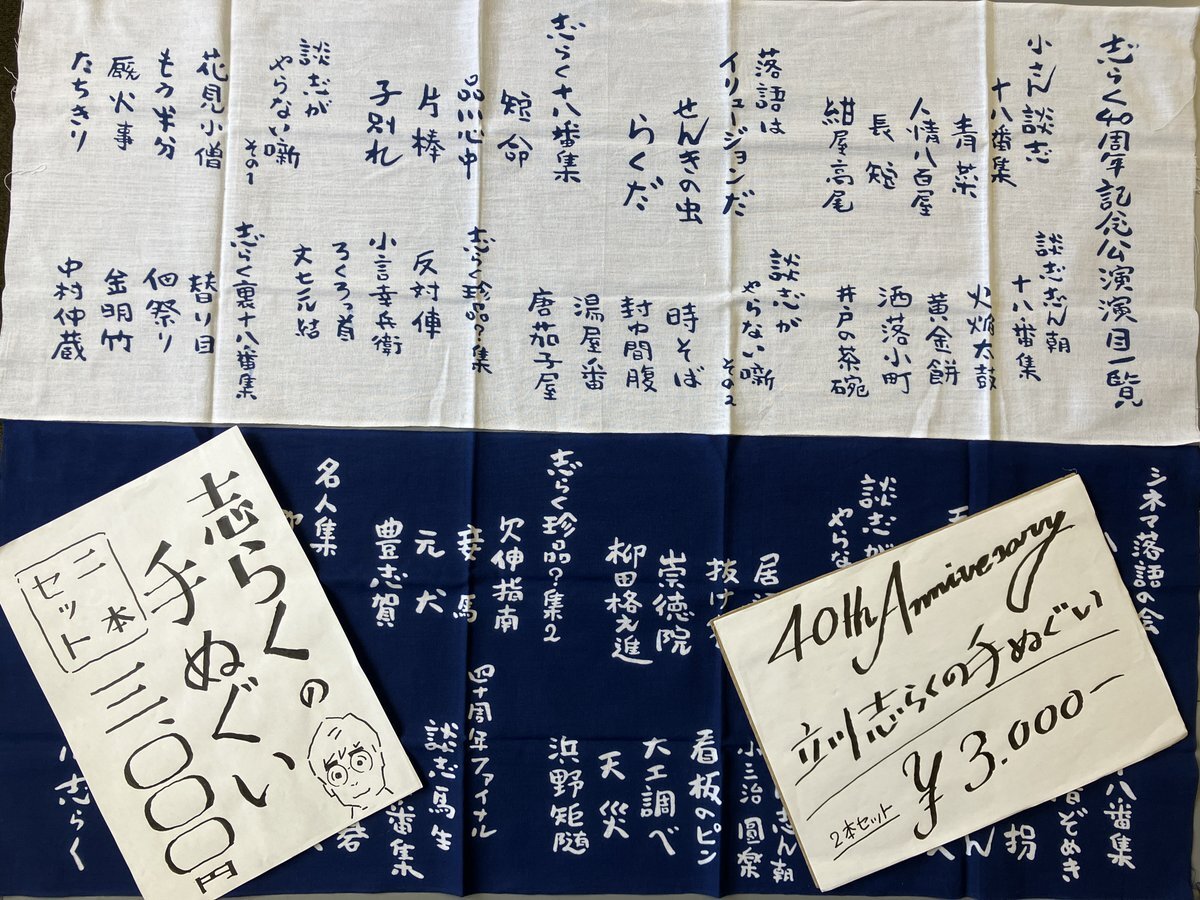 志らく40周年記念公演演目一覧
小さん談志
十八番集
青菜
人情八百屋
長短
紺屋高尾
談志志ん朝
十八番集
火焔太鼓
黄金餅
洒落小町
井戸の茶碗
落語は
イリュージョンだ
せんきの虫
らくだ
談志が
やらない噺
その2
時そば
封間腹
湯屋番
唐茄子屋
志らく十八番集
短命
品川心中
片棒
子別れ
志らく珍品?集
反対俥
小言幸兵衛
ろくろっ首
文七元結
談志が
やらない噺
その1
花見小僧
もう半分
厩火事
たちきり
志らく裏十八番集
替り目
佃祭り
金明竹
中村仲蔵
シネマ落語の会
八番集
ぞめき
拐
ん
談志が
やらな
居
抜け
崇徳院
柳田格之進
志ん朝
小三治 圓楽
看板のピン
大工調べ
天災
浜野矩随
志らく珍品?集2
欠伸指南
妾馬
元犬
豊志賀
四十周年ファイナル
談志馬生
番集
名人集
志らく
志らくの
手ぬぐい
二本
セット
三.000円
40th Anniversary
立川志らくの手ぬぐい
¥3.000-
2本セット